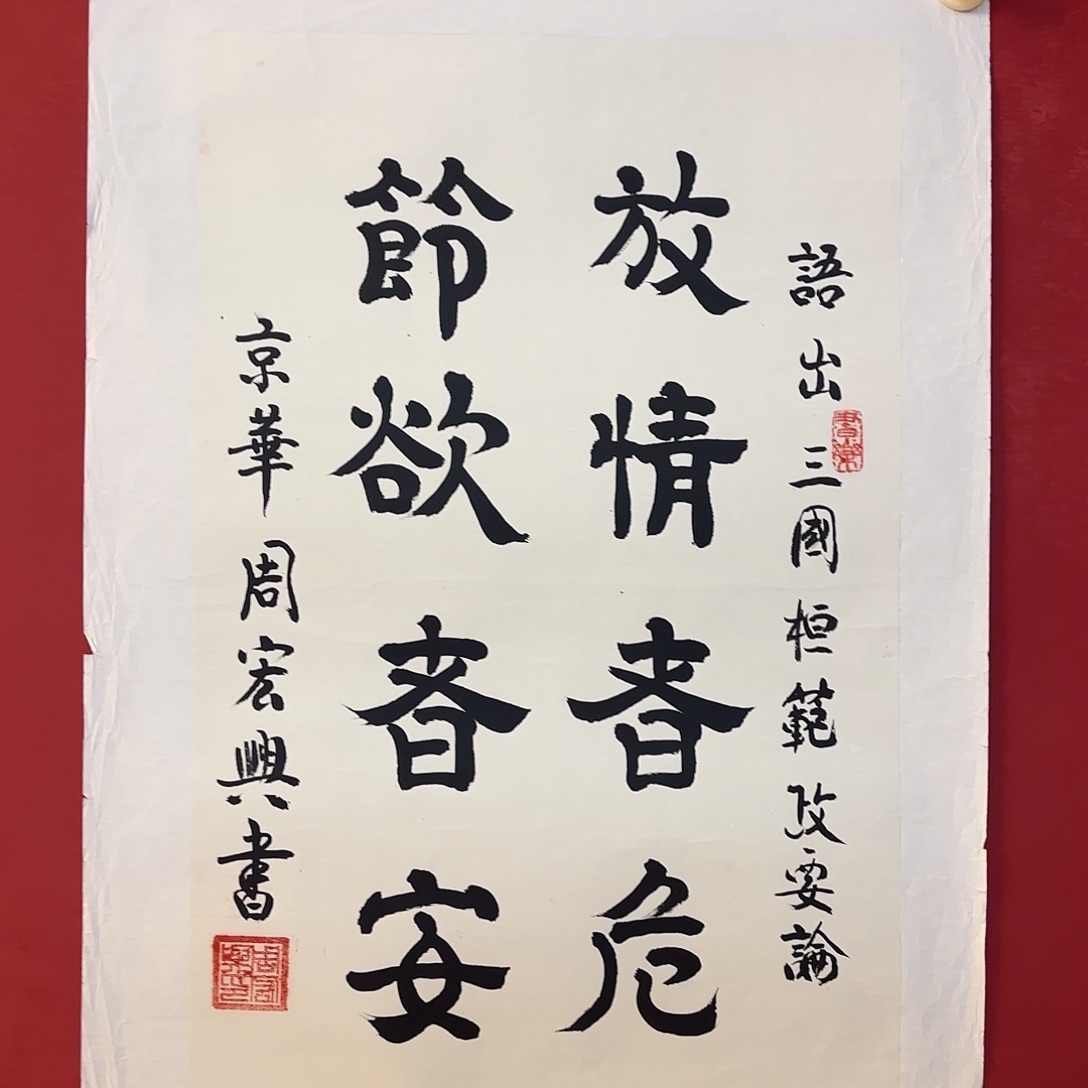 語出三國桓範政要論
放情者危
節欲者安
京華周宏興書